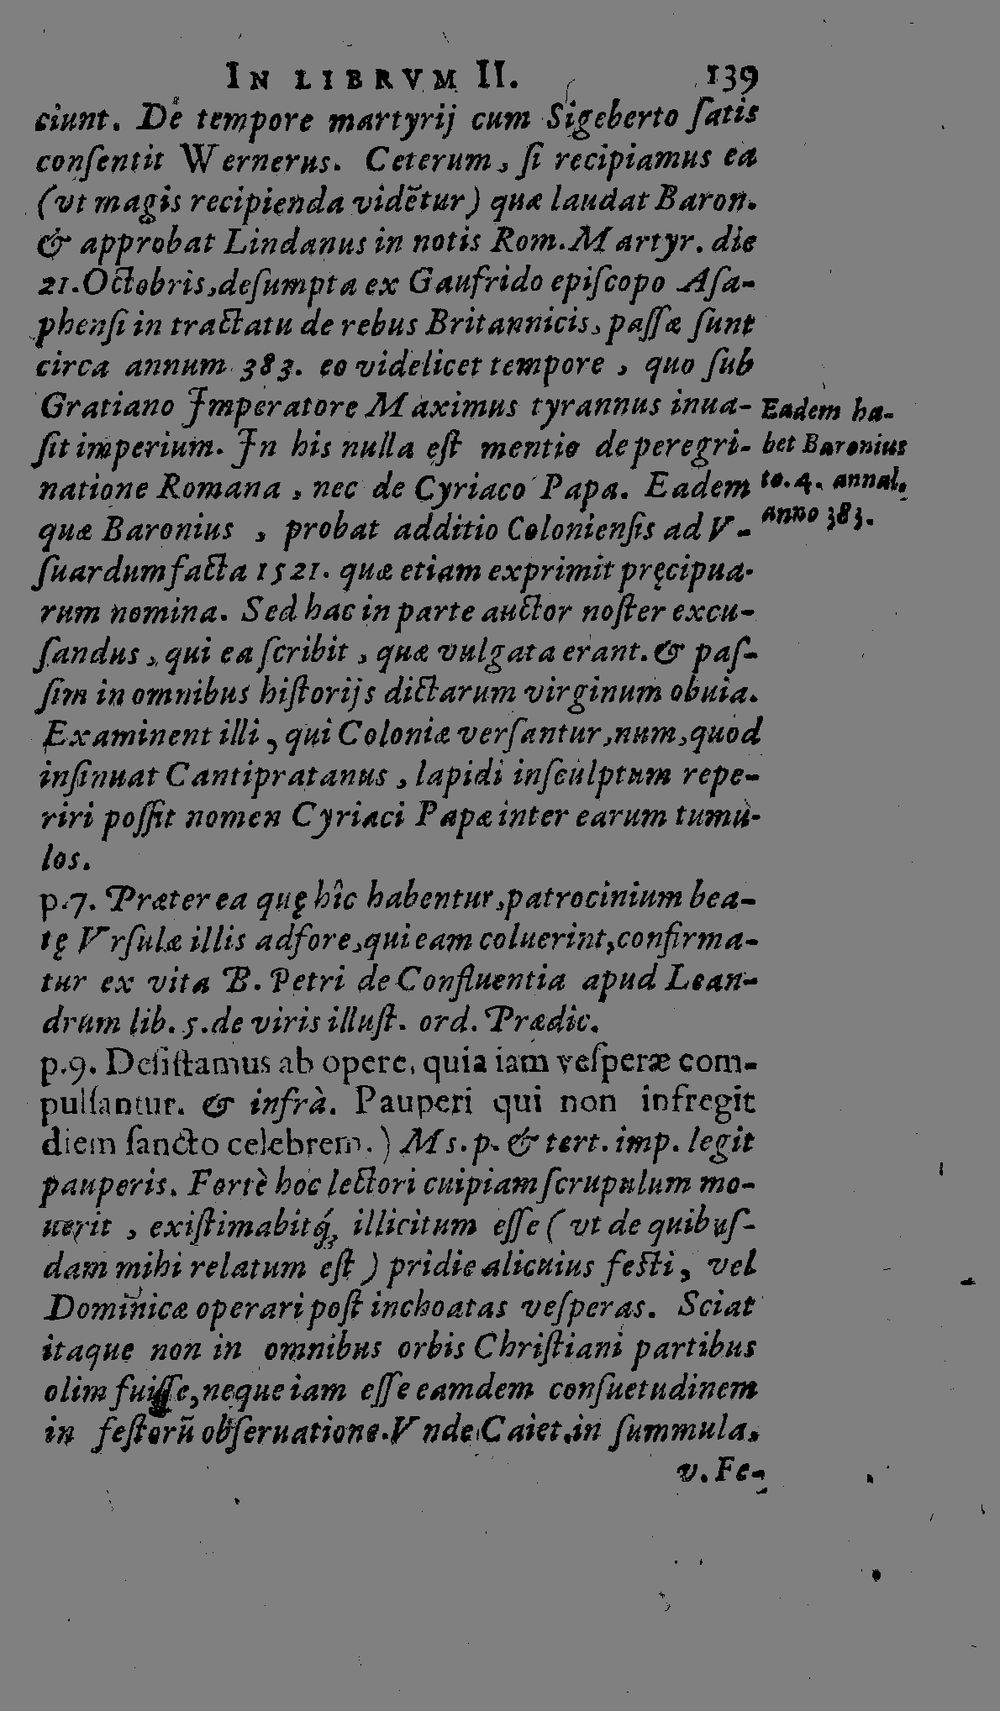 IN LIBRVM II. 139
ciunt. De tempore martyrij cum Sigeberto ſatis
conſentit Wernerus. Ceterum, ſi recipiamus ea
(vt magis recipienda vidētur) quæ laudat Baron.
& approbat Lindanus in notis Rom. Martyr. die
21. Octobris, deſumpta ex Gaufrido epiſcopo Aſa-
phenſi in tractatu de rebus Britannicis, paſſæ ſunt
circa annum 383. eo videlicet tempore, quo ſub
Gratiano Imperatore Maximus tyrannus inua-
ſit imperium. In his nulla eſt mentio de peregri-
natione Romana, nec de Cyriaco Papa. Eadem
quæ Baronius, probat additio Colonienſis ad V-
ſuardum facta 1521. quæ etiam exprimit pręcipua-
rum nomina. Sed hac in parte auctor noſter excu-
ſandus, qui ea ſcribit, quæ vulgata erant. & paſ-
ſim in omnibus hiſtorijs dictarum virginum obuia.
Examinent illi, qui Coloniæ verſantur, num, quod
inſinuat Cantipratanus, lapidi inſculptum repe-
riri poſſit nomen Cyriaci Papæ inter earum tumu-
los.
Eadem ha-
bet Baronius
to. 4. annal.
anno 383.
p.7. Præter ea quę hîc habentur, patrocinium bea-
tę Vrſulæ illis adfore, qui eam coluerint, confirma-
tur ex vita B. Petri de Confluentia apud Lean-
drum lib. 5. de viris illuſt. ord. Prædic.
p.9. Deſiſtamus ab opere, quia iam veſperæ com-
pulſantur. & infrà. Pauperi qui non infregit
diem ſancto celebrem.) Ms. p. & tert. imp. legit
pauperis. Fortè hoc lectori cuipiam ſcrupulum mo-
uerit, exiſtimabitq́; illicitum eſſe (vt de quibuſ-
dam mihi relatum eſt) pridie alicuius feſti, vel
Dominicæ operari poſt inchoatas veſperas. Sciat
itaque non in omnibus orbis Chriſtiani partibus
olim fuiſſe, neque iam eſſe eamdem conſuetudinem
in feſtorū obſeruatione. Vnde Caiet. in ſummula,
v. Fe-